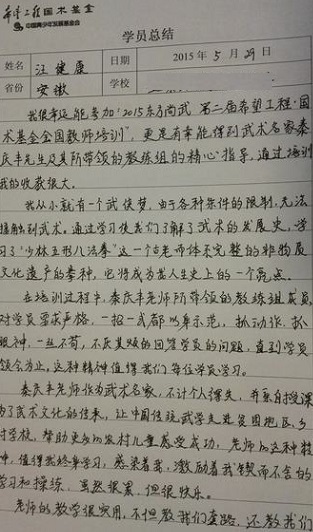 希望工程国术基金
中国青少年发展基金会
学员总结
姓名 汪健康 日期 2015年5月29日
省份 安徽 学校
我很幸运能参加“2015东方尚武 第二届希望工程·国
术基金全国教师培训”，更是有幸能得到武术名家秦
庆丰先生及其所带领的教练组的精心指导，通过培训
我的收获很大。
我从小就有一个武侠梦，由于各种条件的限制，无法
接触到武术。通过学习使我们了解了武术的发展史，学
习了“少林五形八法拳”这一个古老而体系完整的非物质
文化遗产的拳种，它将成为我人生史上的一个亮点。
在培训过程中，秦庆丰老师所带领的教练组成员，
对学员要求严格，一招一式都以身示范，抓动作、抓
眼神，一丝不苟，不厌其烦的回答学员的问题，直到学员
领会为止，这种精神值得我们每位学员学习。
秦庆丰老师作为武术名家，不计个人得失，并亲自授课
为了武术文化的传承，让中国传统武学走进贫困地区，乡
村学校，帮助更多的农村儿童感受成功，老师的这种精
神，值得我终身学习，感染着我，激励着我锲而不舍的
学习和操练，虽然很累，但很快乐。
老师的教学很实用，不但教我们套路，还教我们